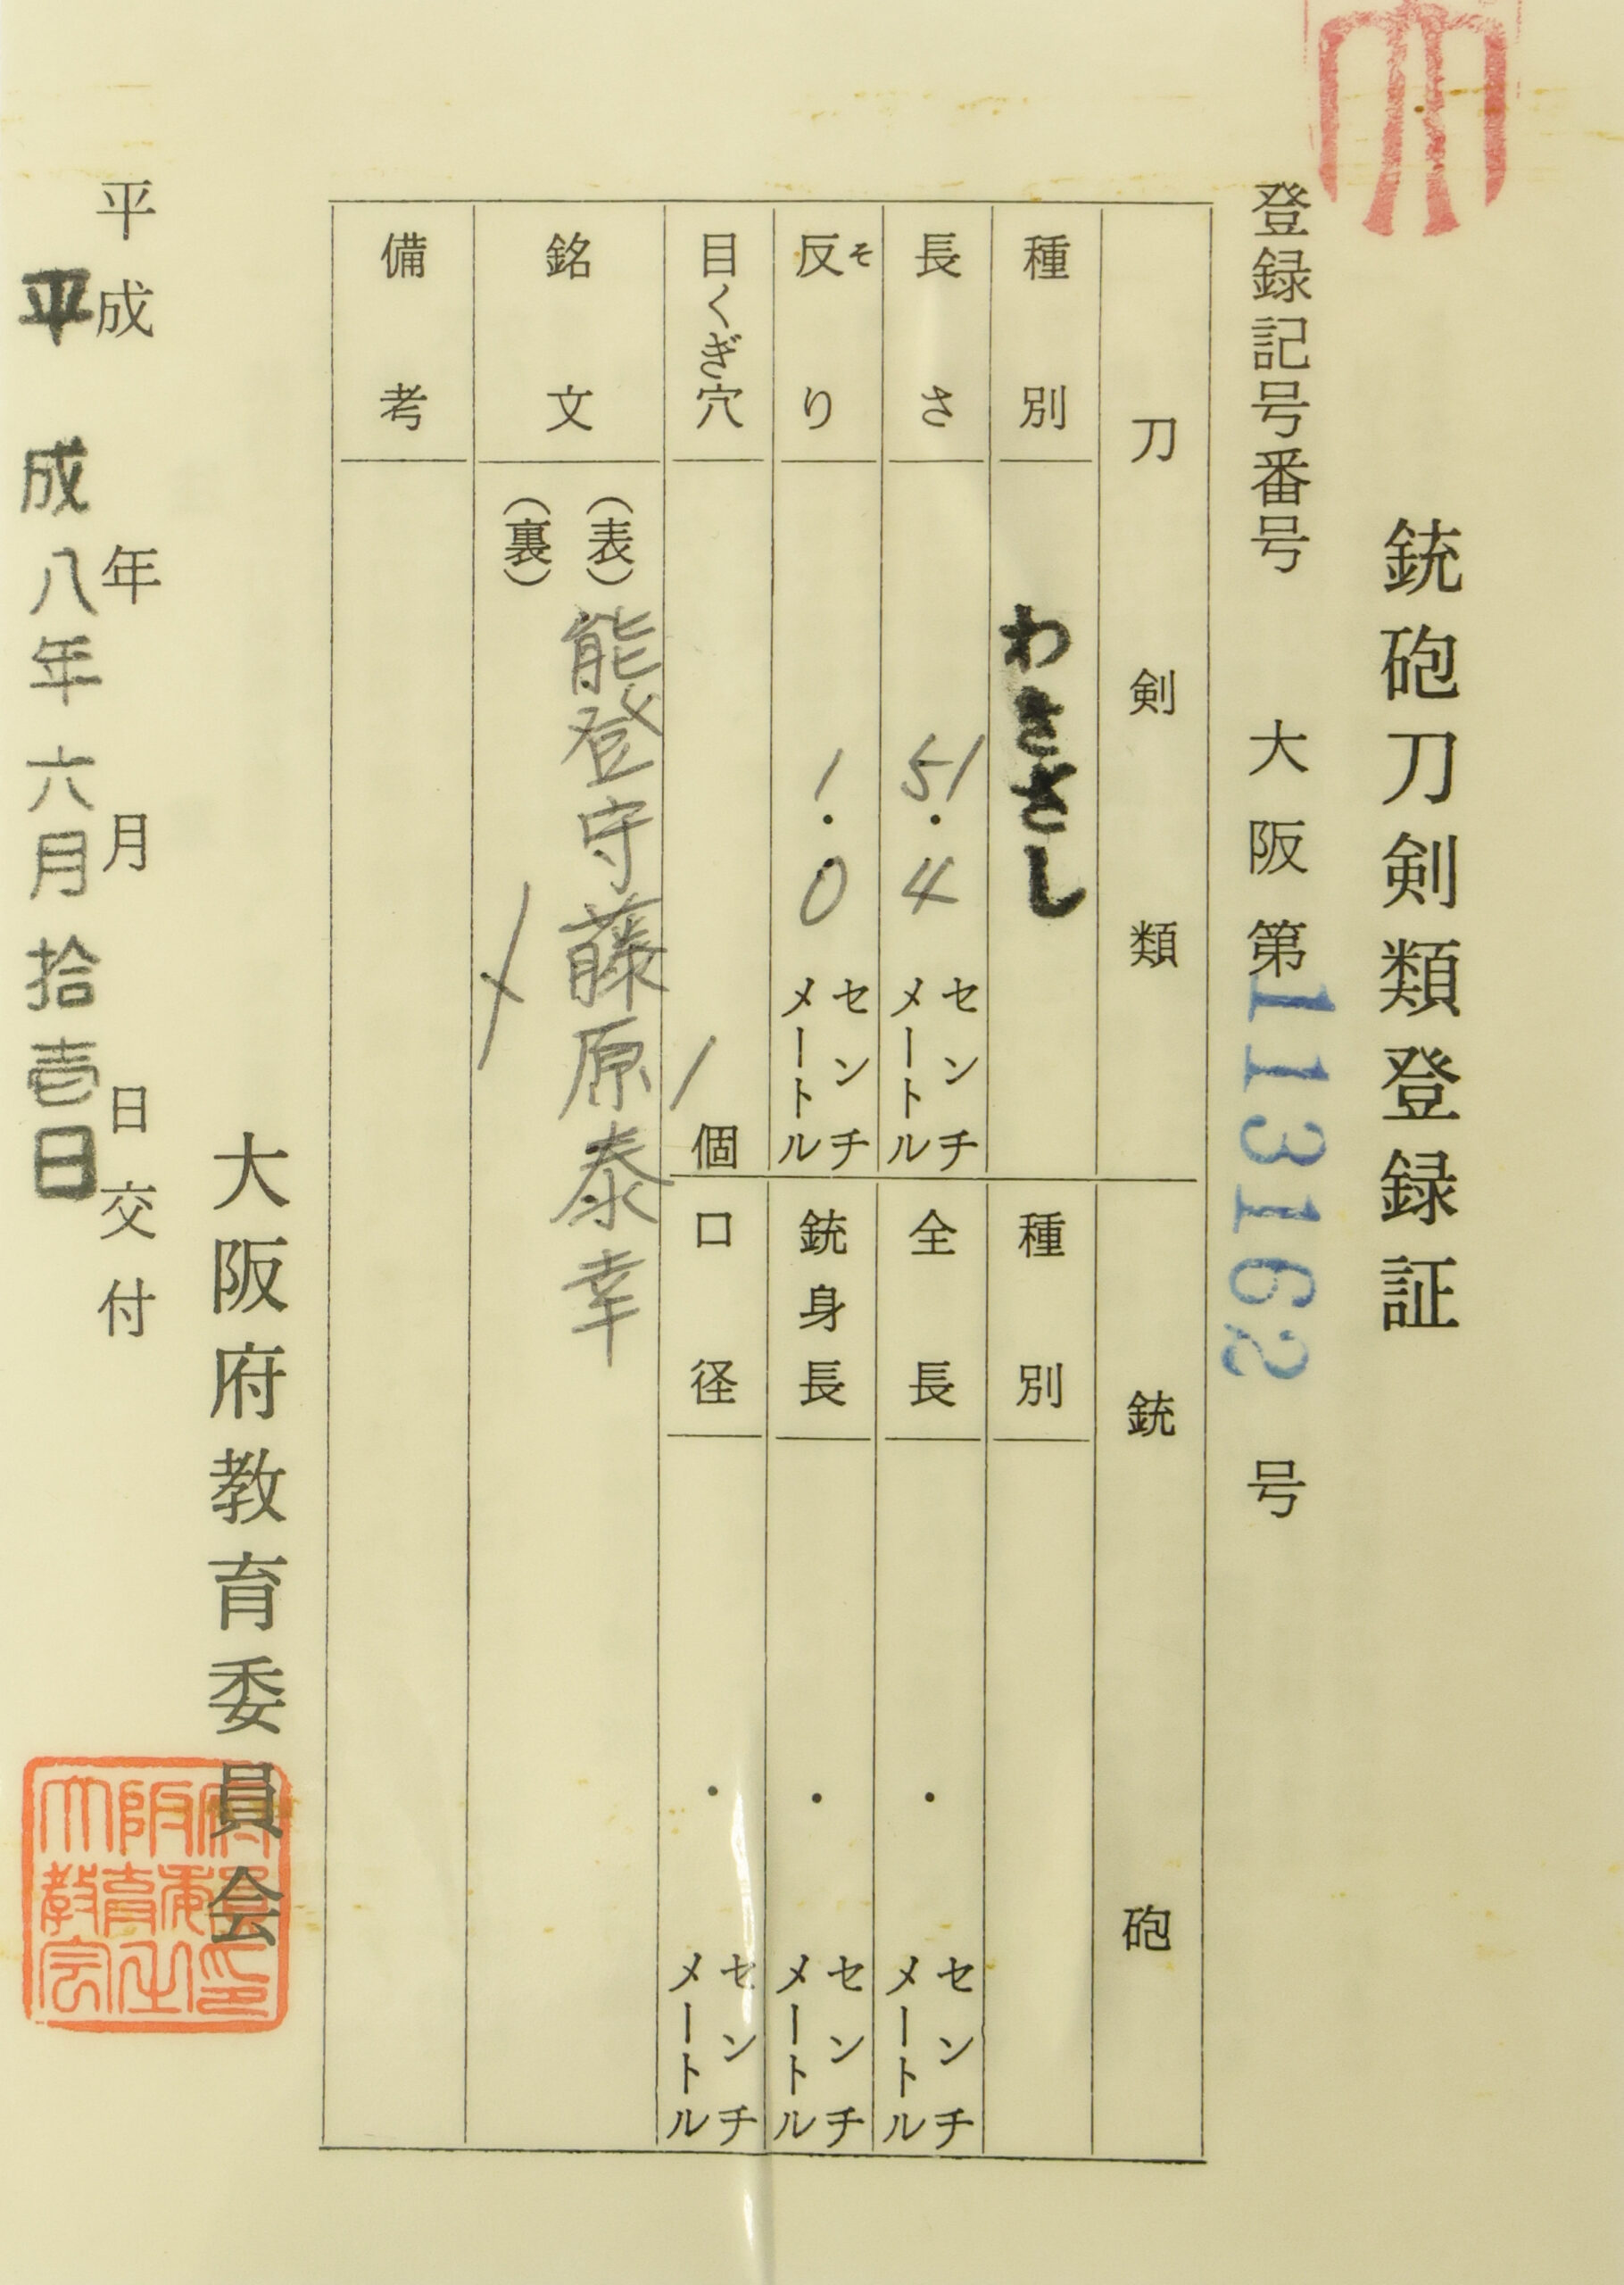 銃砲刀剣類登録証
登録記号番号 大阪 第113162号
刀剣類
種別 わきざし
長さ 51.4 センチメートル
反り そ 1.0 センチメートル
目くぎ穴 1 個
銘文 (表) 能登守藤原泰幸
(裏)
備考
銃砲
種別
全長 ・ センチメートル
銃身長 ・ センチメートル
口径 ・ センチメートル
大阪府教育委員会
平成 年 月 日交付
平成八年六月拾壱日
大阪府教育委員会之印